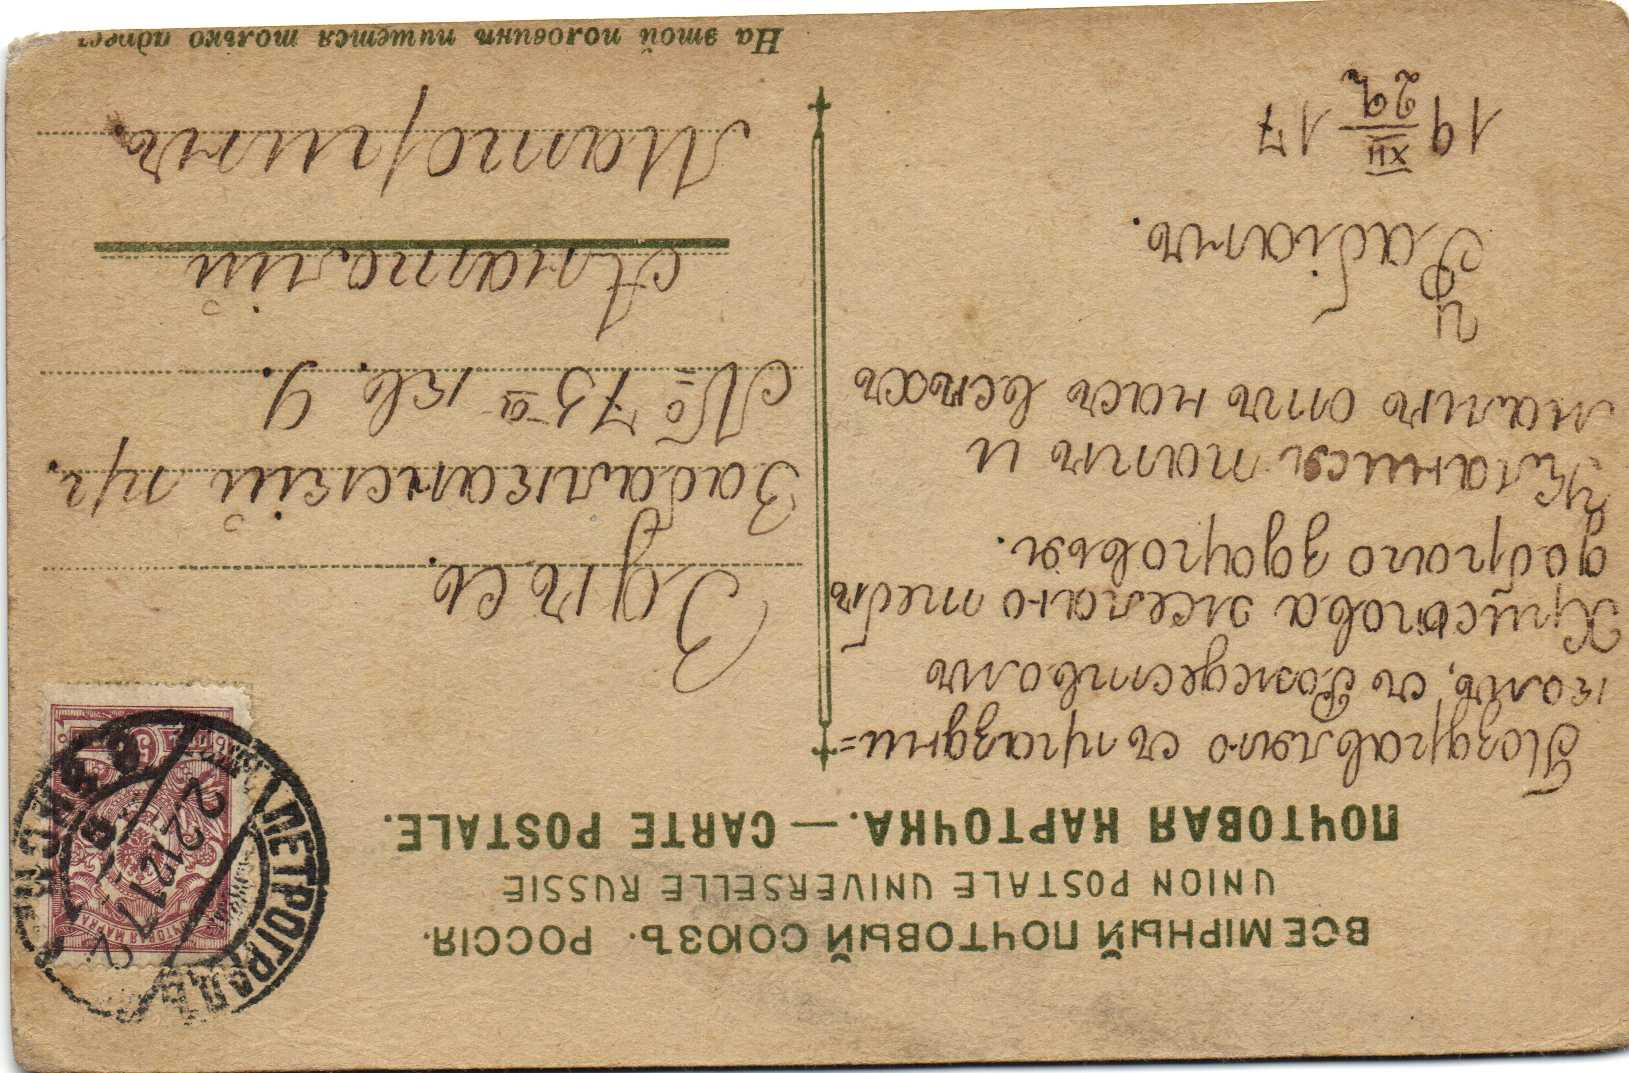 ВСЕМІРНЫЙ ПОЧТОВЫЙ СОЮЗЪ. РОССІЯ.
UNION POSTALE UNIVERSELLE RUSSIE
ПОЧТОВАЯ КАРТОЧКА. — CARTE POSTALE.
Поздравляю съ праздни=
комъ, съ Рождествомъ
Христова желаю тебѣ
добраго здоровья.
Кланися папѣ и
мамѣ отъ насъ всѣхъ
И
Фабіанъ.
19 XII/29 17
ПЕТРОГРАДЪ
22 12 17
5
Здѣсь.
Забалканскій пр.
№ 75-а кв. 9.
Анатолій
На этой половинѣ пишется только адресъ